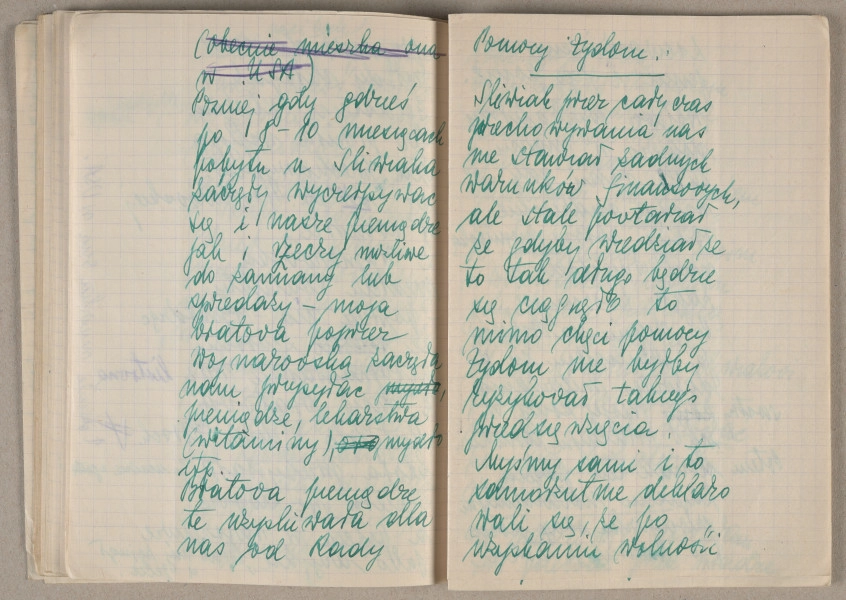 (obecnie mieszka ona
w USA)
Pózniej gdy gdzieś
po 8-10 miesiącach
pobytu u Śliwiaka
zaczęły wyczerpywac
się i nasze pieniądze
jak i rzeczy możliwe
do zamiany lub
sprzedaży – moja
bratowa poprzez
Wojnarowską zaczęła
nam przysyłac mydło,
pieniądze, lekarstwa
(witaminy), mydło
itp.
Bratowa pieniądze
te uzyskiwała dla
nas od Rady
Pomocy Żydom.
Śliwiak przez cały czas
przechowywania nas
nie stawiał żadnych
warunków finansowych,
ale stale powtarzał
że gdyby wiedział że
to tak długo będzie
się ciągnęło to
mimo chęci pomocy
Żydom nie byłby
ryzykował takiego
przedsięwzięcia.
Myśmy sami i to
samorzutnie deklaro
wali się, że po
uzyskaniu wolności